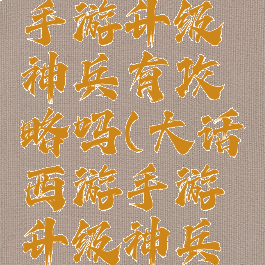 手游升级
神兵有攻
略吗(大话
西游手游
升级神兵